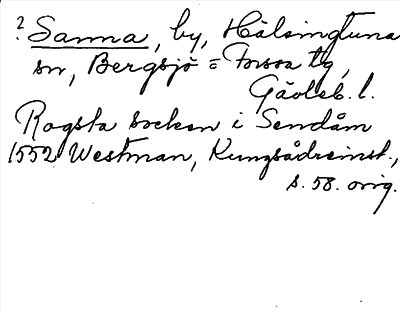 ? Sanna, by, Hälsingtuna
sn, Bergsjö = Forsa tg,
Gävleb. l.
Rogsta socken i Sendåm
1552 Westman, Kungsådreinst.,
s. 58. orig.